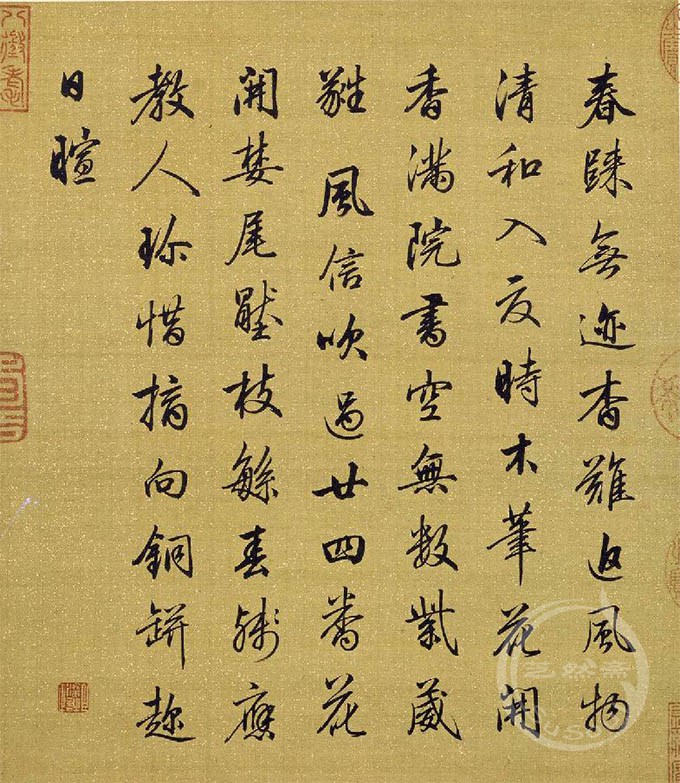 春歸無迹杳難追風物
清和入夏時木筆花開
香滿院書空無數紫葳
蕤 風信吹過廿四番花
開婪尾壓枝緐春殘應
教人珍惜摘向銅缾趁
日暄
八徵耄念